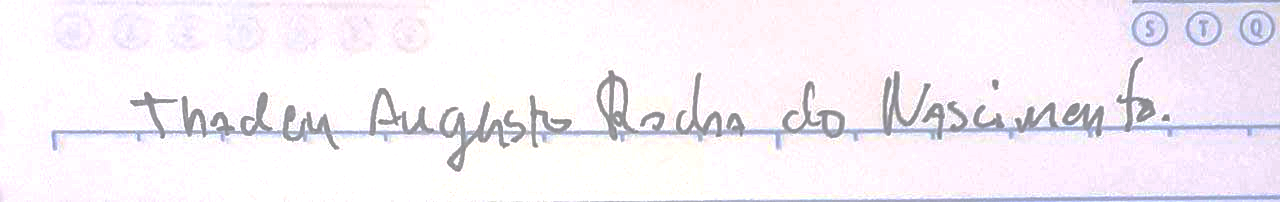 S T Q
Thadeu Augusto Rocha do Nascimento.